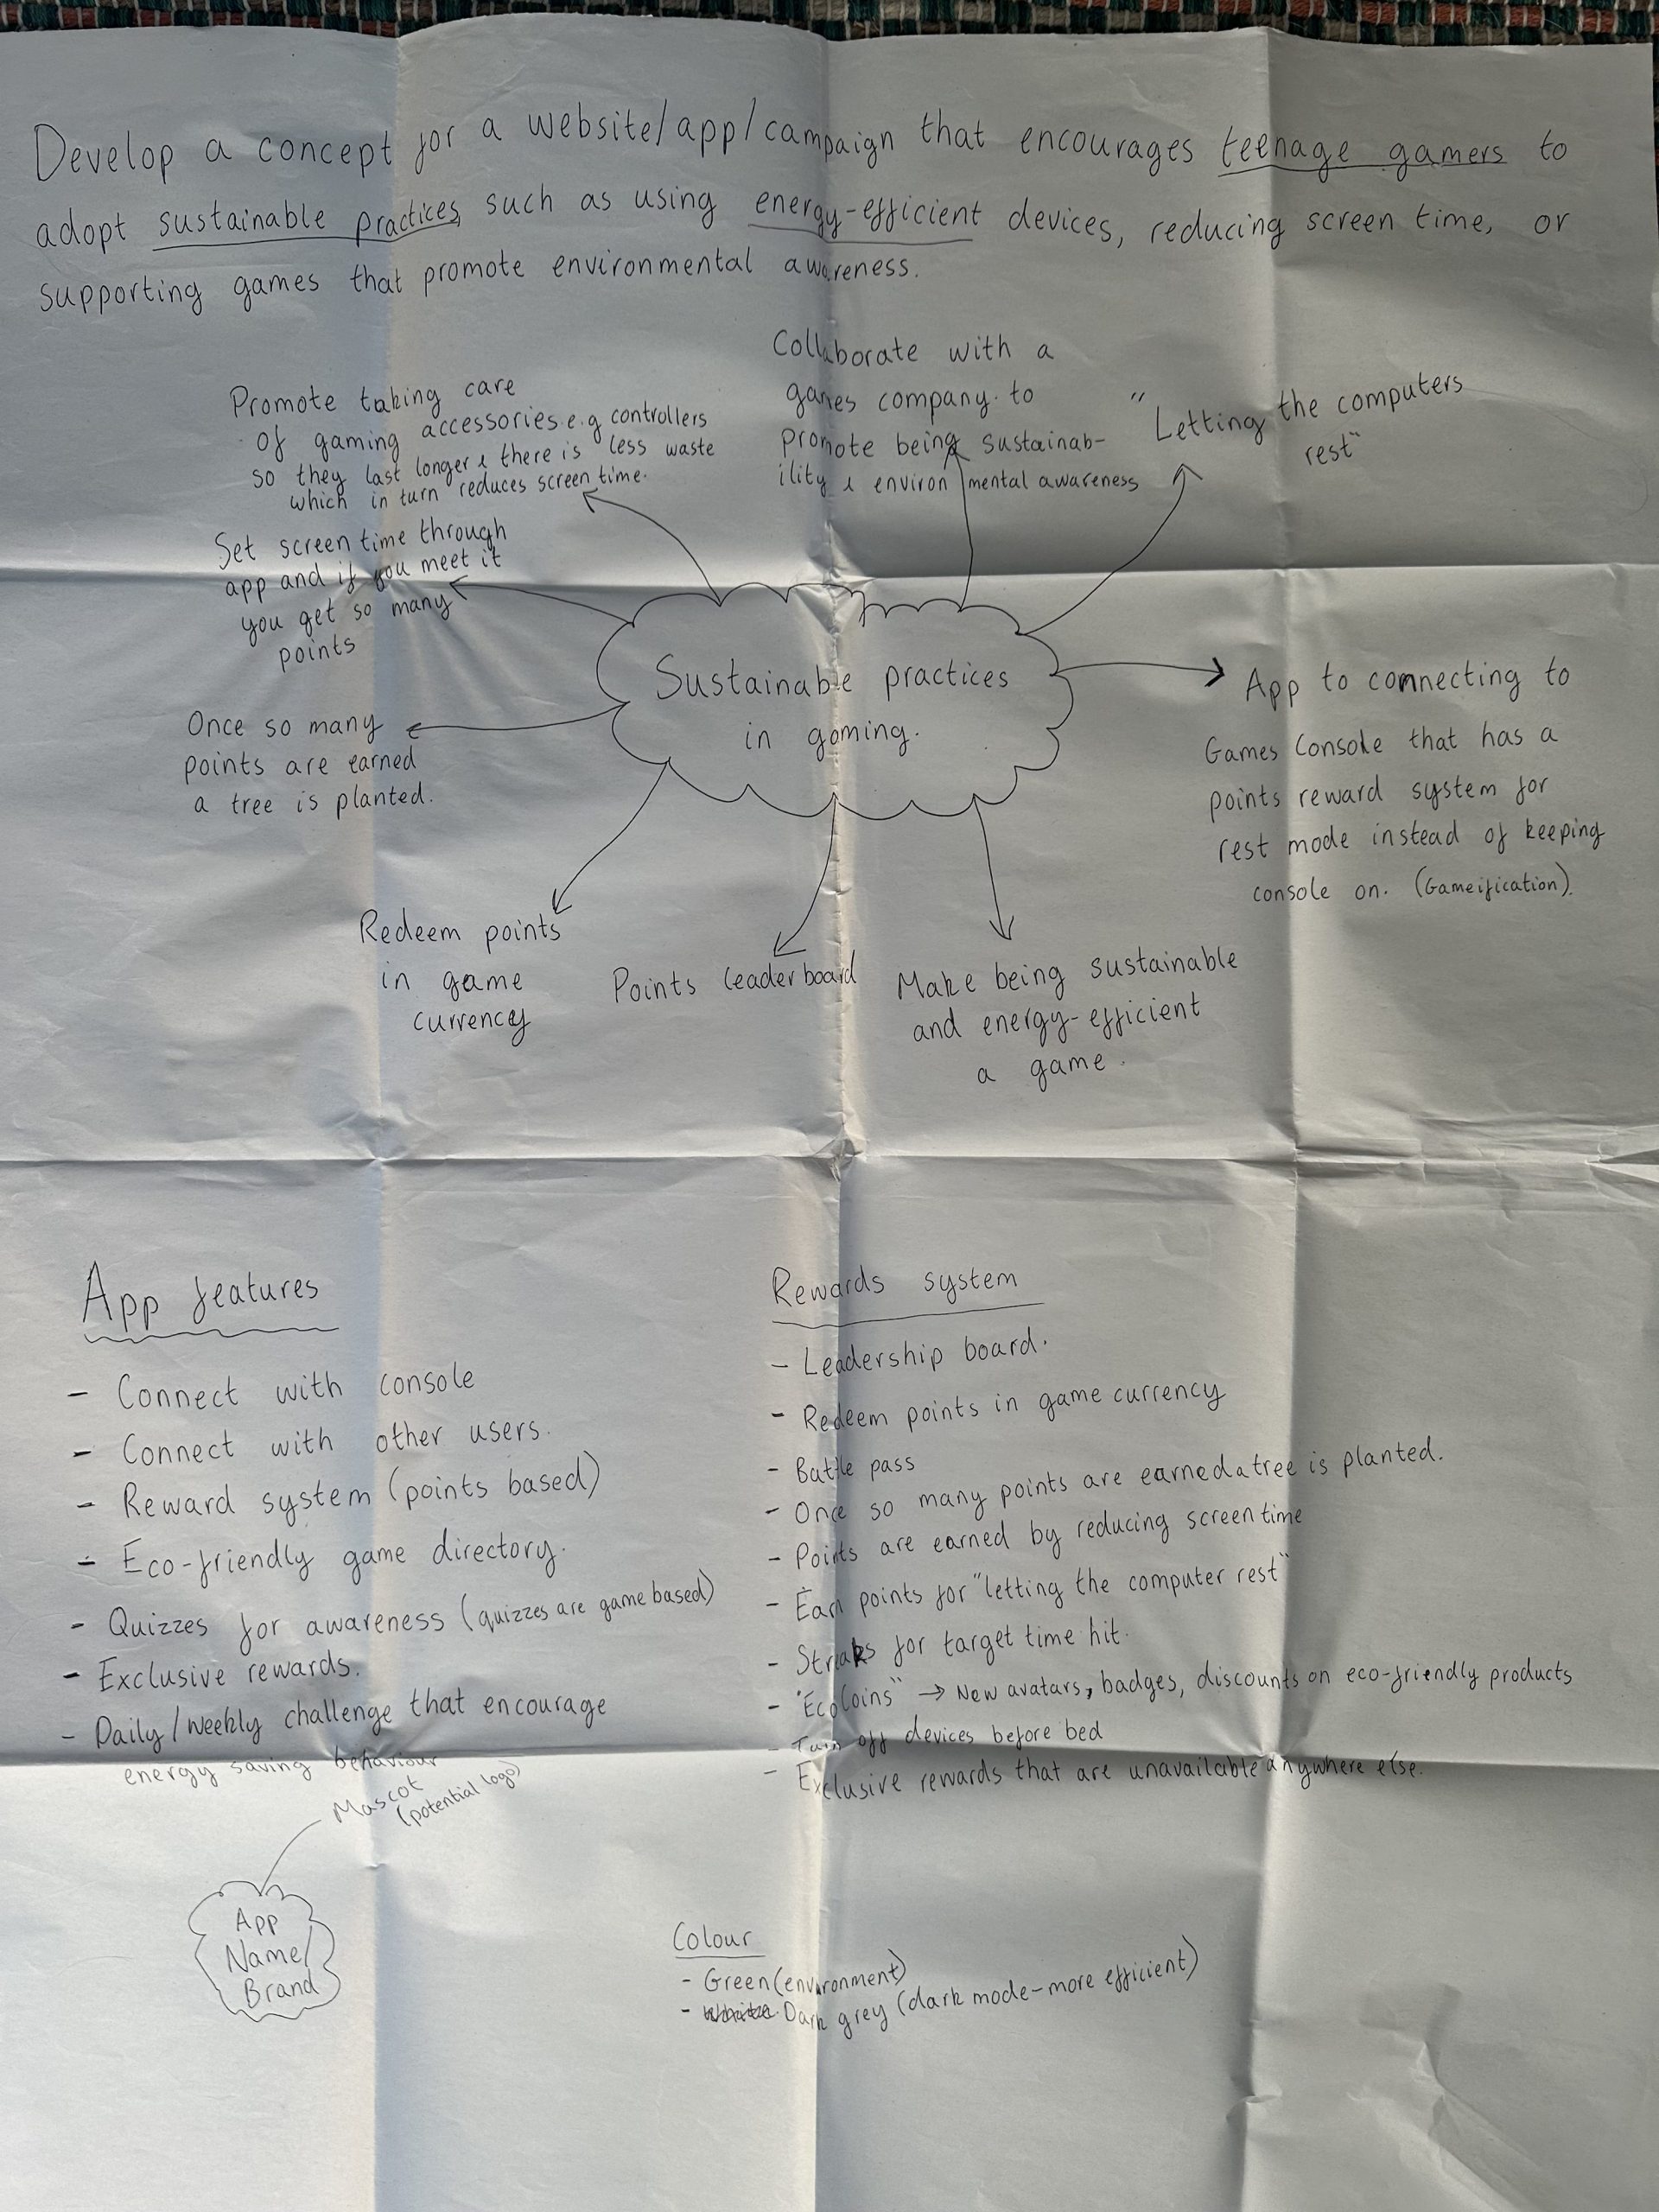 Develop a concept for a website/app/campaign that encourages teenage gamers to
adopt sustainable practices, such as using energy-efficient devices, reducing screen time, or
supporting games that promote environmental awareness.
Promote taking care
of gaming accessories e.g controllers
so they last longer & there is less waste
which in turn reduces screen time.
Collaborate with a
games company to
promote being sustainab-
ility & environmental awareness
"Letting the computers
rest"
Set screen time through
app and if you meet it
you get so many
points
Sustainable practices
in gaming.
App to connecting to
Games Console that has a
points reward system for
rest mode instead of keeping
console on. (Gameification).
Once so many
points are earned
a tree is planted.
Redeem points
in game
currency
Points leaderboard
Make being sustainable
and energy-efficient
a game.
App features
- Connect with console
- Connect with other users.
- Reward system (points based)
- Eco-friendly game directory.
- Quizzes for awareness (quizzes are game based)
- Exclusive rewards.
- Daily/Weekly challenge that encourage
energy saving behaviour
Rewards system
- Leadership board.
- Redeem points in game currency
- Battle pass
- Once so many points are earned a tree is planted.
- Points are earned by reducing screen time
- Earn points for "letting the computer rest"
- Streaks for target time hit.
- "EcoCoins" → New avatars, badges, discounts on eco-friendly products
- Turn off devices before bed
- Exclusive rewards that are unavailable anywhere else.
Mascot
(potential logo)
App
Name/
Brand
Colour
- Green (environment)
- Dark grey (dark mode - more efficient)